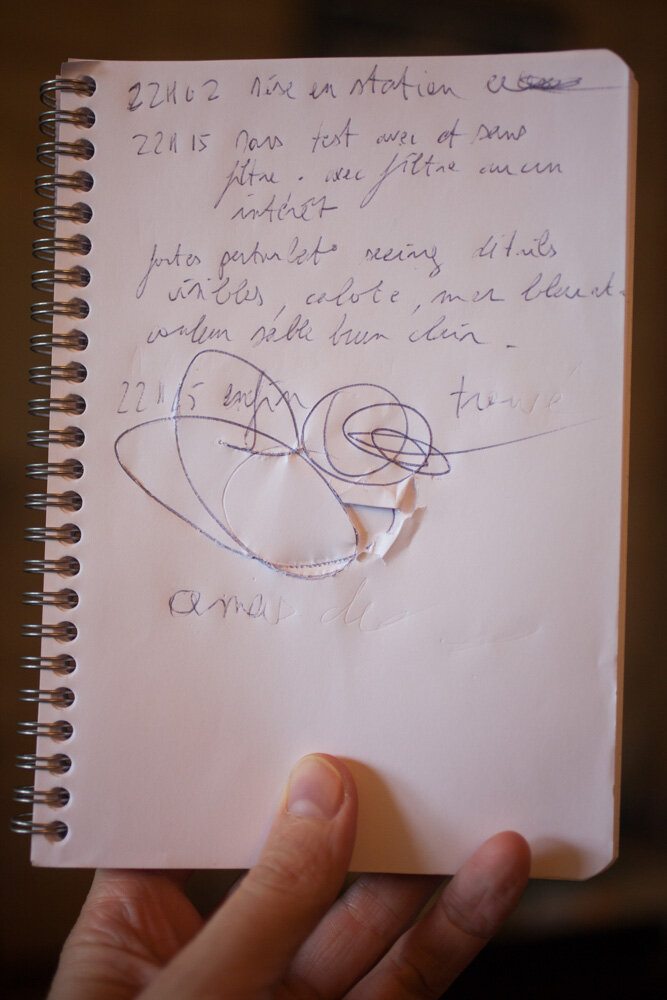 22H02 Mise en station
22H15 Mars test avec et sans
filtre. avec filtre aucun
intérêt
fortes perturbat° seeing détails
visibles, calote, mer
couleur sable brun clair.
22H 5 enfin trouvé
amas de